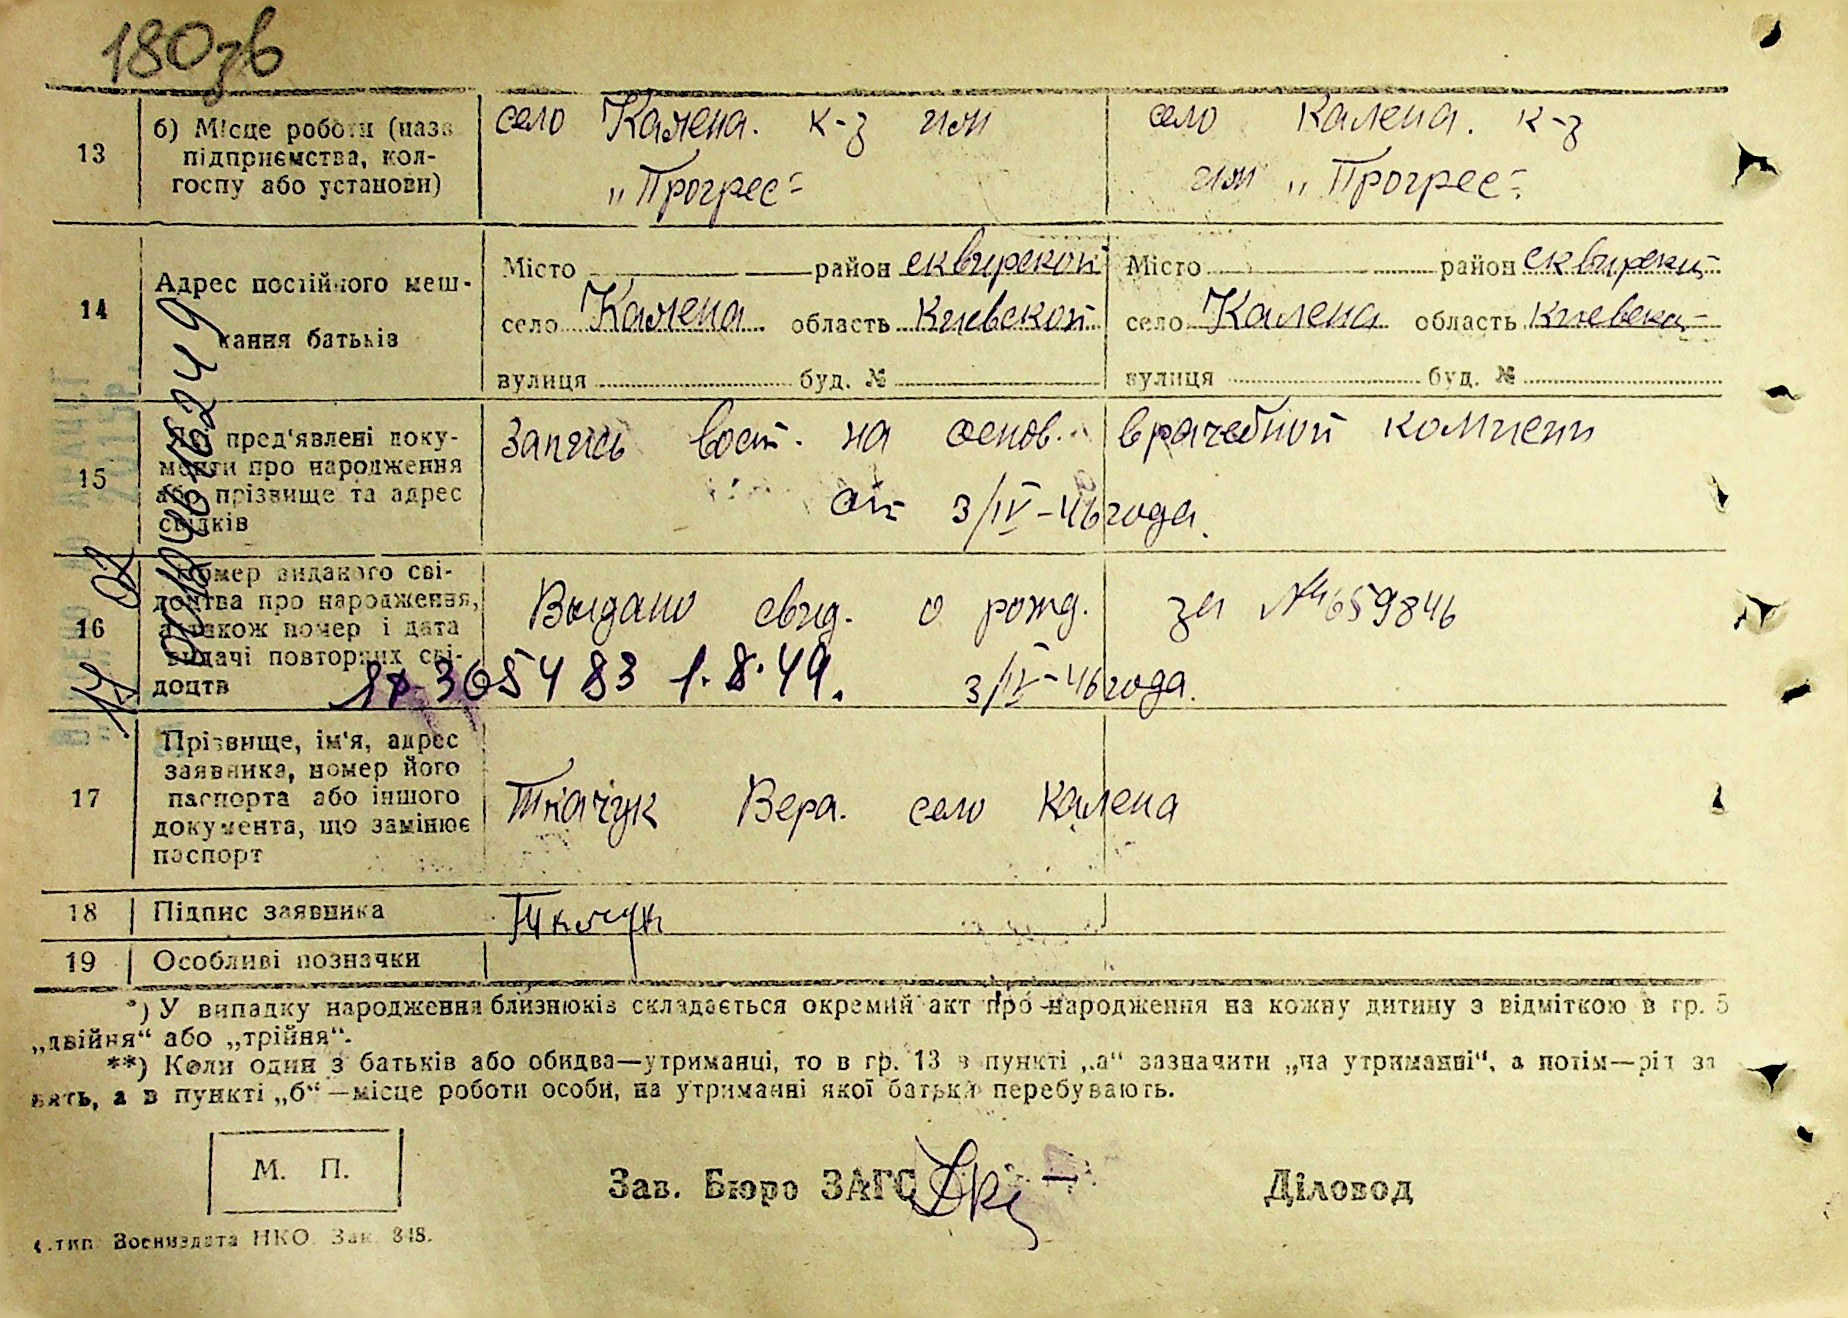 180зв
13
б) Місце роботи (назв
підприємства, кол-
госпу або установи)
село Калена. к-з или
„Прогрес"
село Калена. к-з
или „Прогрес"
14
Адрес постійного меш-
кання батьків
Місто район сквирской
село Калена область Киевской
вулиця буд. №
Місто район сквирск
село Калена область Киевска
вулиця буд. №
15
Які пред'явлені доку-
менти про народження
або прізвище та адрес
свідків
Запись вост. на основ. врачебной комисии
от 3/IV-46 года.
16
Номер виданого сві-
доцтва про народження,
а також номер і дата
видачі повторних сві-
доцтв
Выдано свид. о рожд. за № 659846
3/IV-46 года.
3654 83 1.8.49.
17
Прізвище, ім'я, адрес
заявника, номер його
паспорта або іншого
документа, що замінює
паспорт
Ткачук Вера. село Калена
18
Підпис заявника
Ткачук
19
Особливі позначки
*) У випадку народження близнюків складається окремий акт про народження на кожну дитину з відміткою в гр. 5
„двійня“ або „трійня“.
**) Коли один з батьків або обидва—утриманці, то в гр. 13 в пункті „а“ зазначити „на утриманні“, а потім—рід за
нять, а в пункті „б“—місце роботи особи, на утриманні якої батьки перебувають.
М. П.
Зав. Бюро ЗАГС
Діловод
тип. Воениздата НКО. Зак. 848.